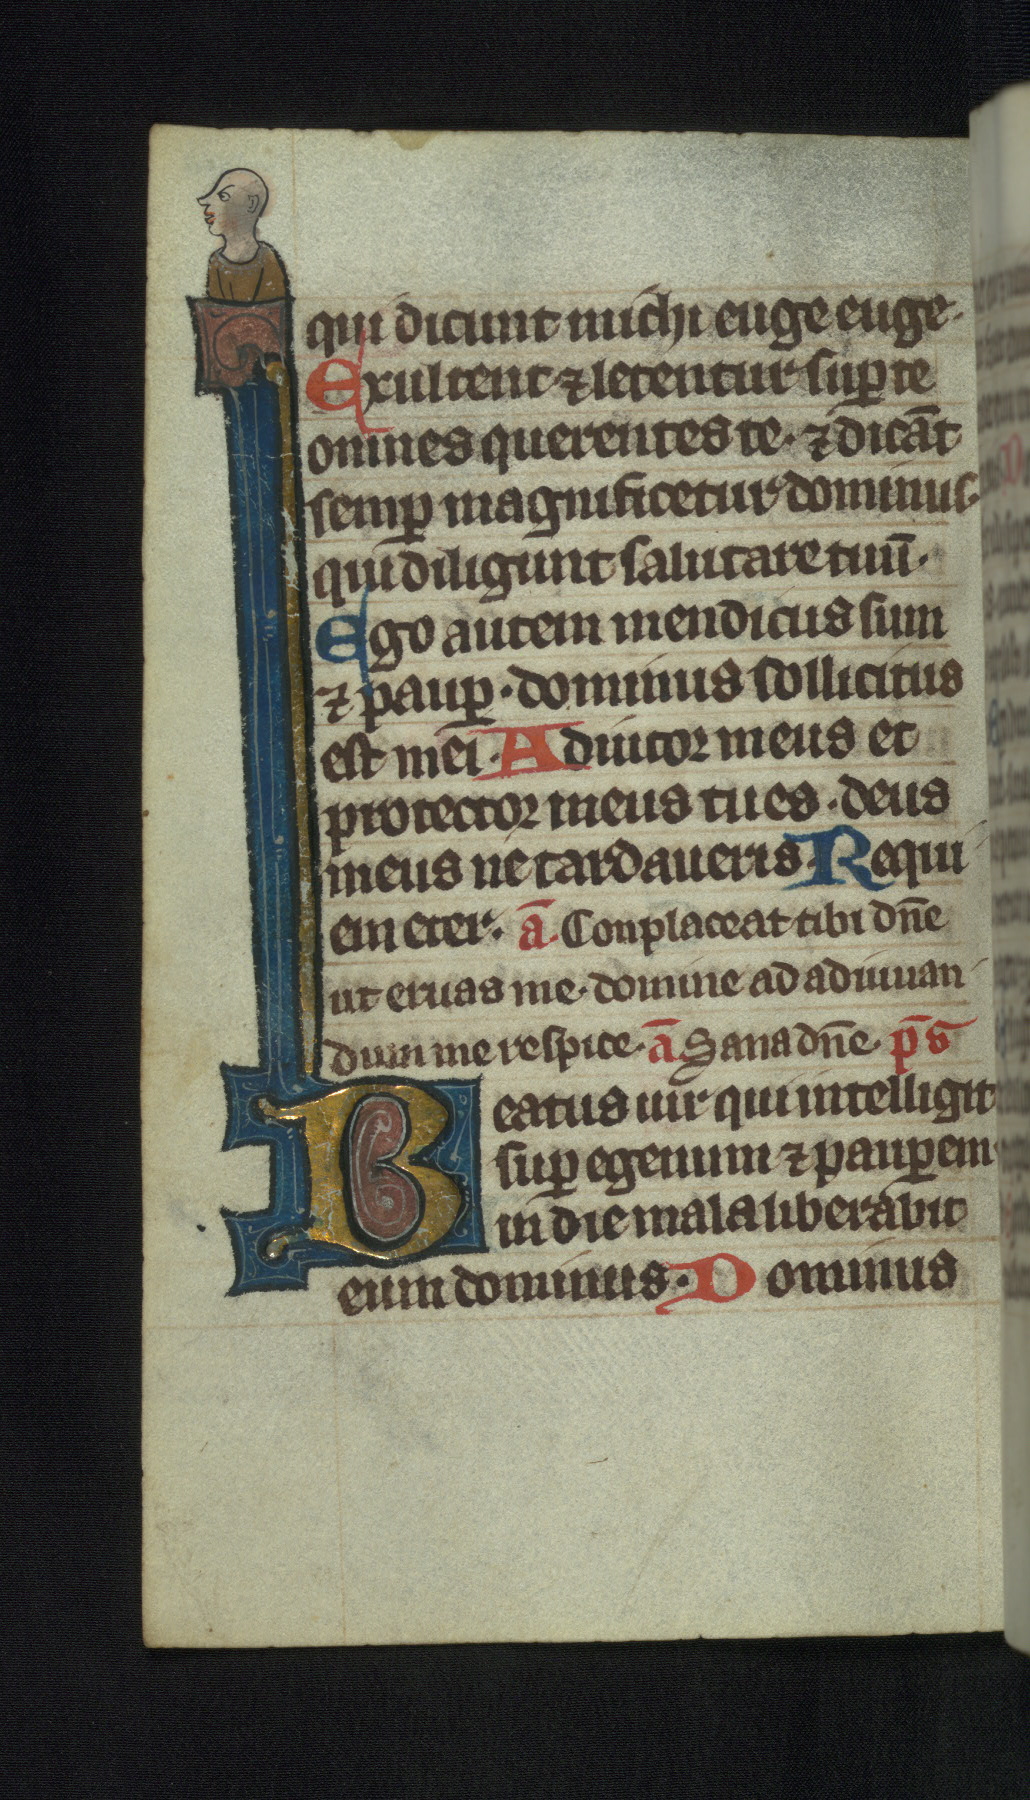 qui dicunt michi euge euge·
Exultent ⁊ letentur sup te
omnes querentes te· ⁊ dicāt
semp magnificetur dominus·
qui diligunt salutare tuū·
Ego autem mendicus sum
⁊ paup· dominus sollicitus
est mei· Adiutor meus et
protector meus tu es· deus
meus ne tardaueris· Requi
em eter· ā· Conplaceat tibi dn̄e
ut eruas me· domine ad adiuuan
dum me respice· ā Sana dn̄e· p̄s
Beatus uir qui intelligit
sup egenum ⁊ paupem·
in die mala liberabit
eum dominus· Dominus